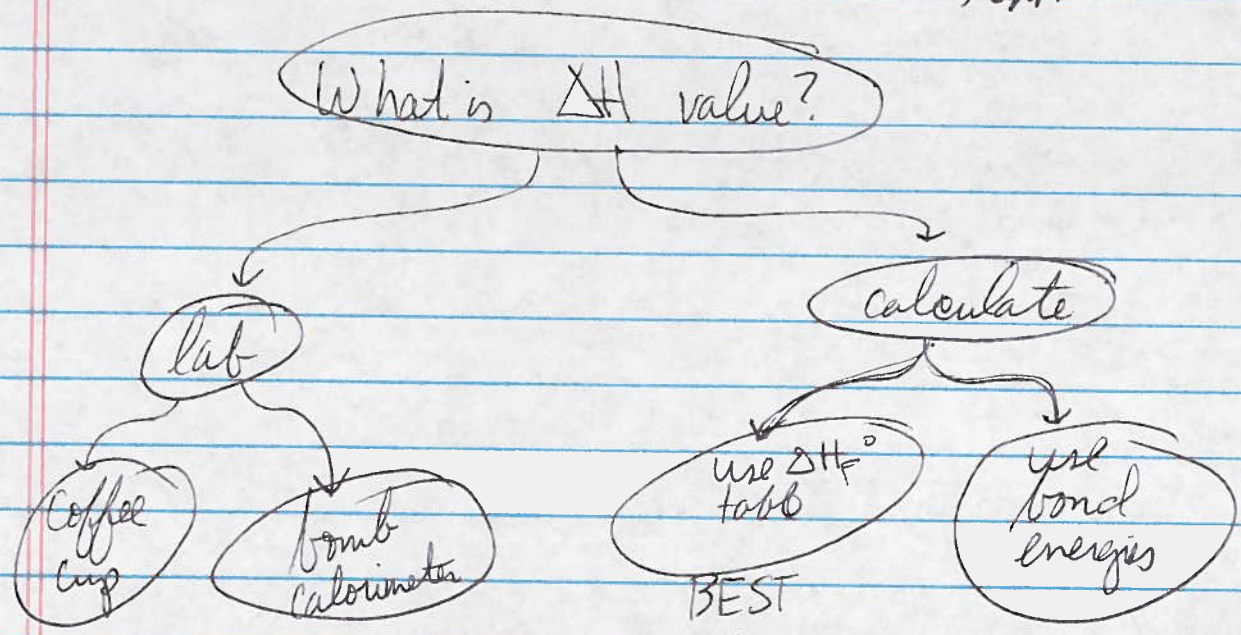 What is ΔH value?
lab
calculate
coffee
cup
bomb
calorimeter
use ΔHF°
table
BEST
use
bond
energies